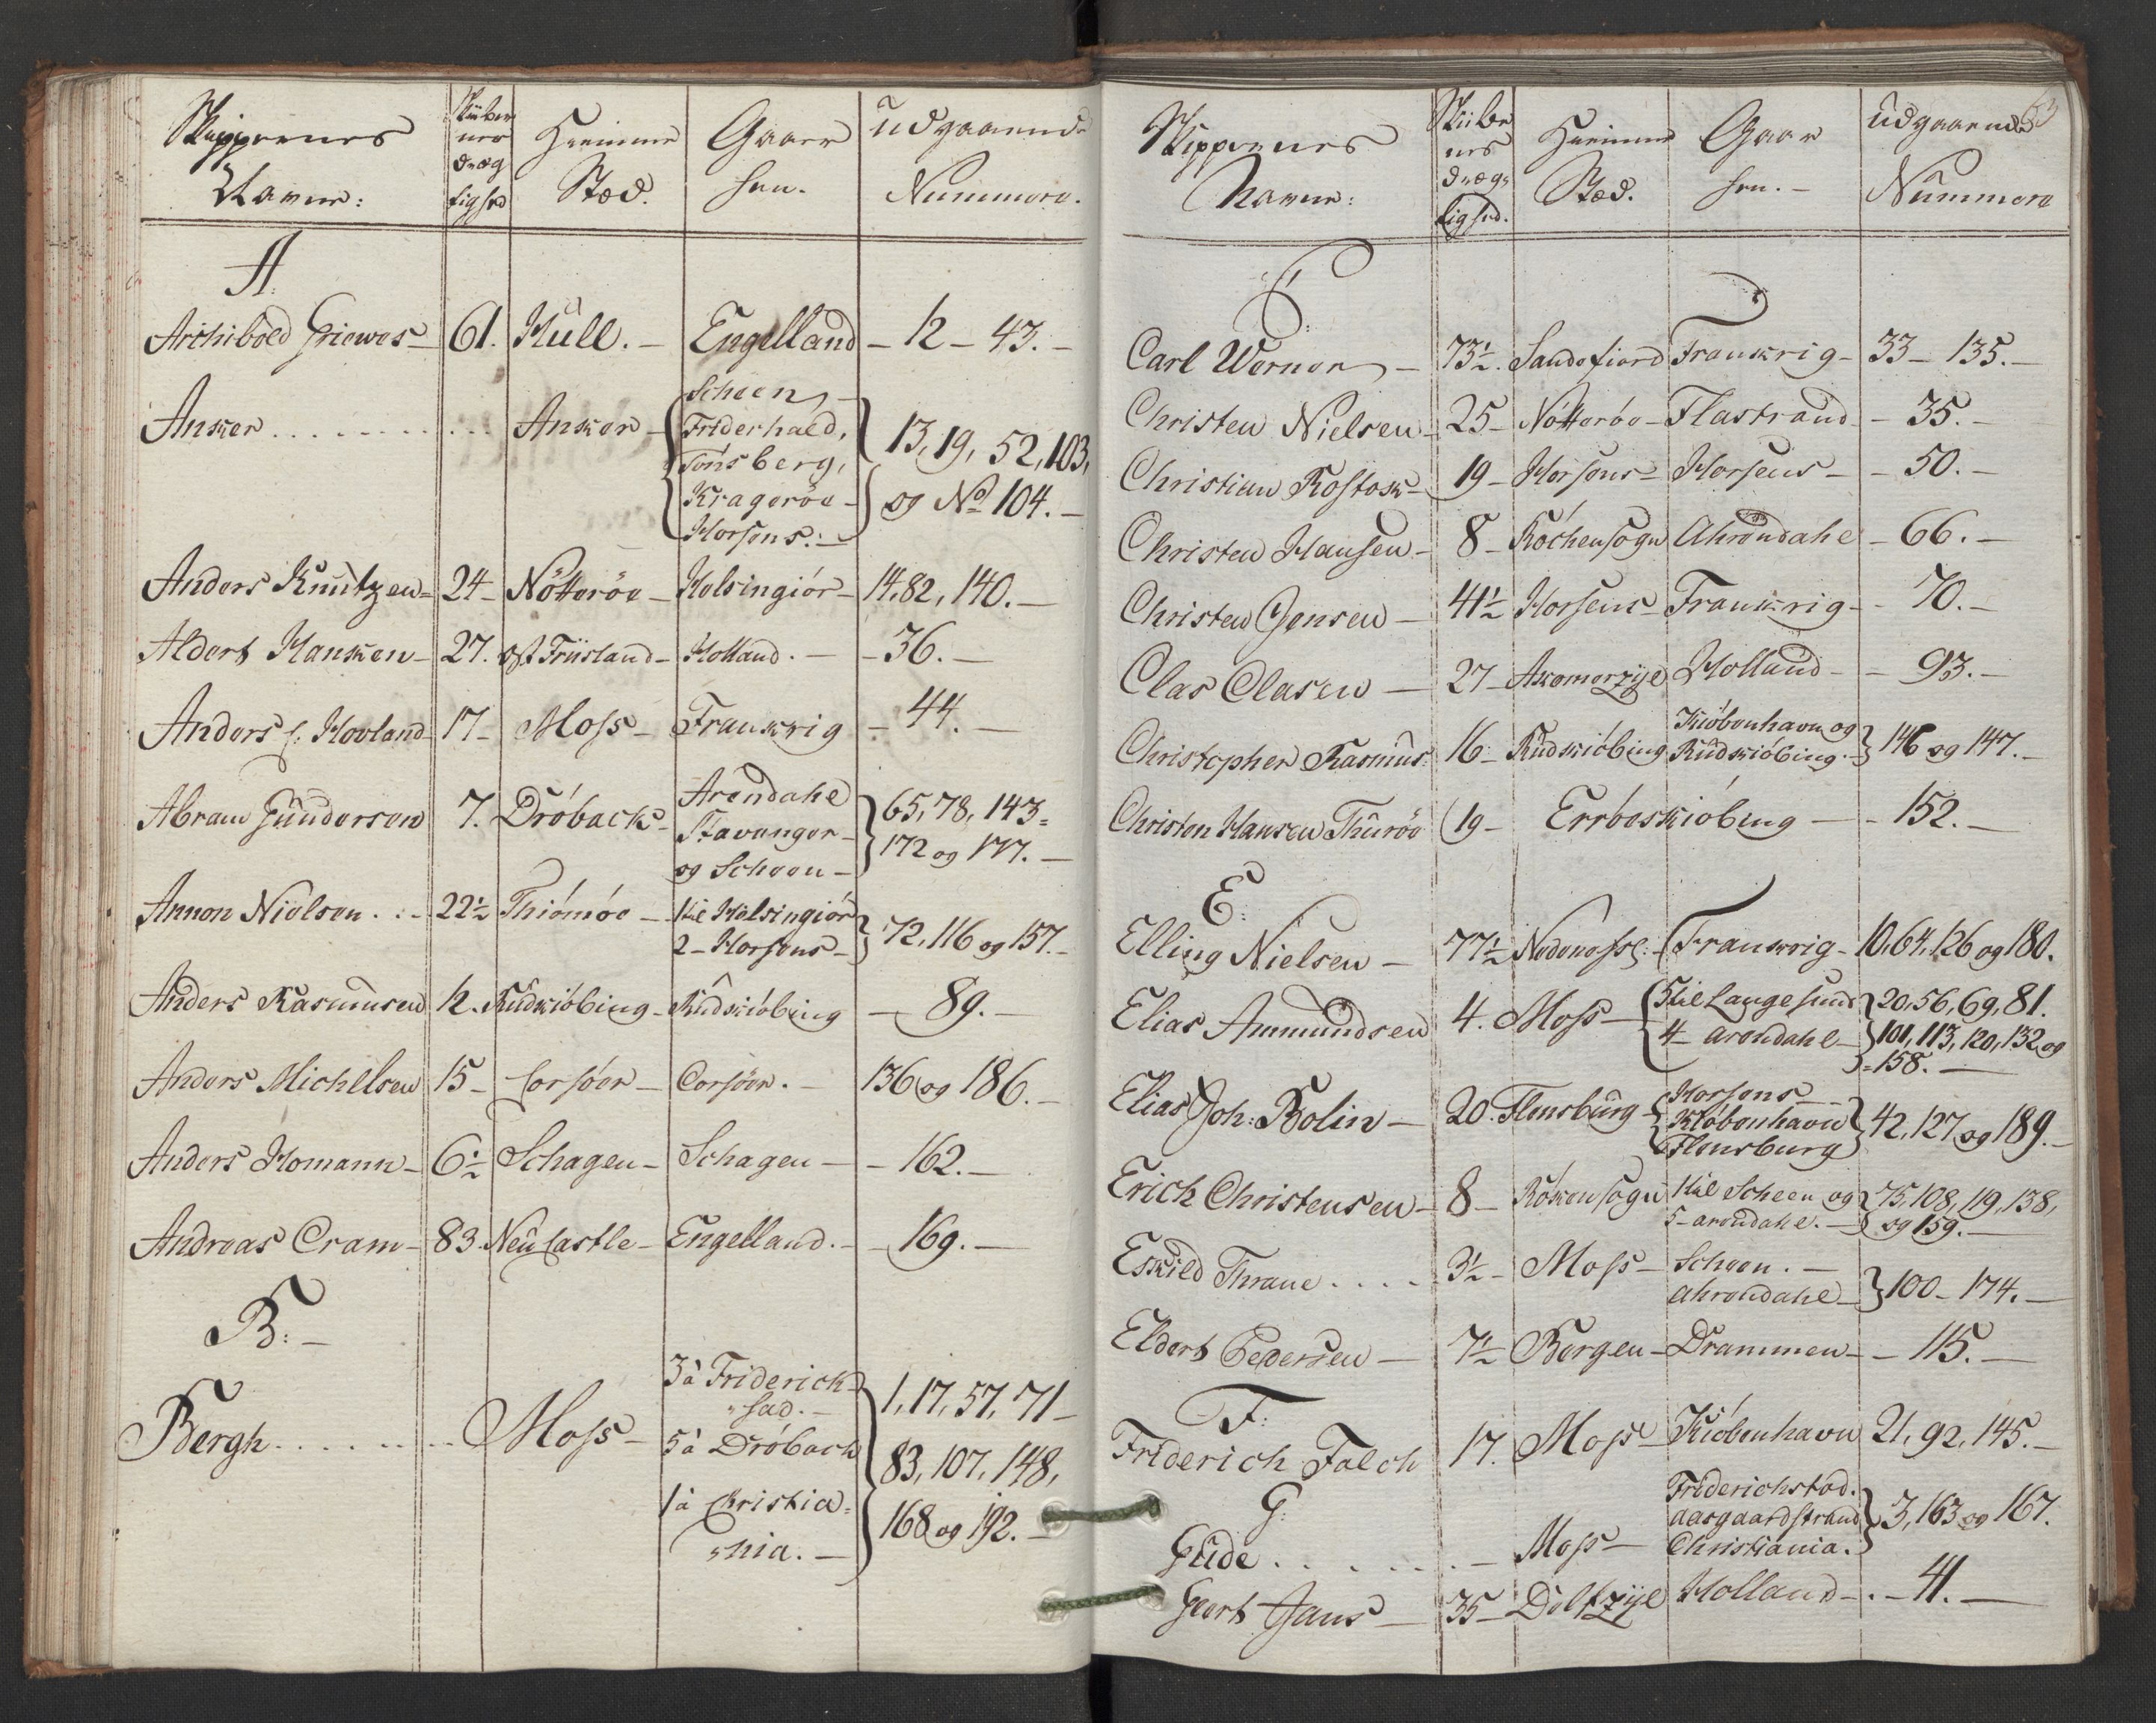 Skippernes Navne: Skibernes Dræglighed Hiemme Stæd. Gaaer hen. Udgaaende Nummere.
A.
Archibold Griewes 61. Hull. Engelland 12 - 43.
Anker Anker Scheen,
Friderhald,
Tönsberg, 13, 19, 52, 103,
Krageröe og No 104.
Horsens.
Anders Knutzen 24 Nötteröe Helsingiör 14, 82, 140.
Aldert Hansken 27. Ost Friisland Holland. 36.
Anders s: Hovland 17 Moss Frankrig 44.
Abram Gunderson 7. Dröback Arendahl 65, 78, 143
Stavanger 172 og 177.
og Scheen
Annon Nielsen 22½ Thiömöe 1 til Helsingiör 72, 116 og 157.
2 Horsens
Anders Rasmusen 12. Rudkiöbing Rudkiöbing 89.
Anders Michelsen 15 Corsöer Corsöer. 136 og 186.
Anders Homann 6½ Schagen Schagen 162.
Andreas Cram 83. Neu Castle Engelland. 169.
B.
Bergh Moss 3 à Friderich 1, 17, 57, 71
sad.
5 à Dröbach 83, 107, 148,
1 à Christia 168 og 192.
nia.
Skippernes Navne: Skibernes Dræglighed. Hiemme Stæd. Gaar hen. Udgaaende Nummere
C:
Carl Werner 73½. Sandefiord Frankrig 33 - 135.
Christen Nielsen 25 Nötteröe Flastrand 35.
Christian Rostock 19 Horsens Horsens 50.
Christen Hansen 8 Röchensogn Ahrendahl 66.
Christen Jensen 41½ Horsens Frankrig 70.
Clas Clasen 27 Akomerzyel Holland 93.
Christopher Rasmus: 16 Rudkiöbing Kiöbenhavn og
Rudkiöbing 146 og 147.
Christen Hansen Thuröe 19 Erröeskiöbing 152.
E:
Elling Nielsen 77½ Frankrig 10, 64, 126 og 180.
Elias Ammundsen 4. Moss 5 til Langesund 20, 56, 69, 81.
4 arendahl 101, 113, 120, 132 og
158.
Elias Joh: Bolin 20. Flensburg Horsens
Kiöbenhavn 42, 127 og 189.
Flensburg
Erich Christensen 8 Rökensogn 1 til Scheen og 75, 108, 119, 138,
5 arendahl. og 159.
Eskild Thrane 3½ Moss Scheen.
Ahrendahl 100 - 174.
Eldert Pedersen 7½ Bergen Drammen 115.
F:
Friderich Falch 17. Moss Kiöbenhavn 21, 92, 145.
G:
Gude Moss Friderichstad.
Aasgaardstrand 3, 163 og 167.
Christiania.
Geert Jans 35 Delfzyl Holland 41.